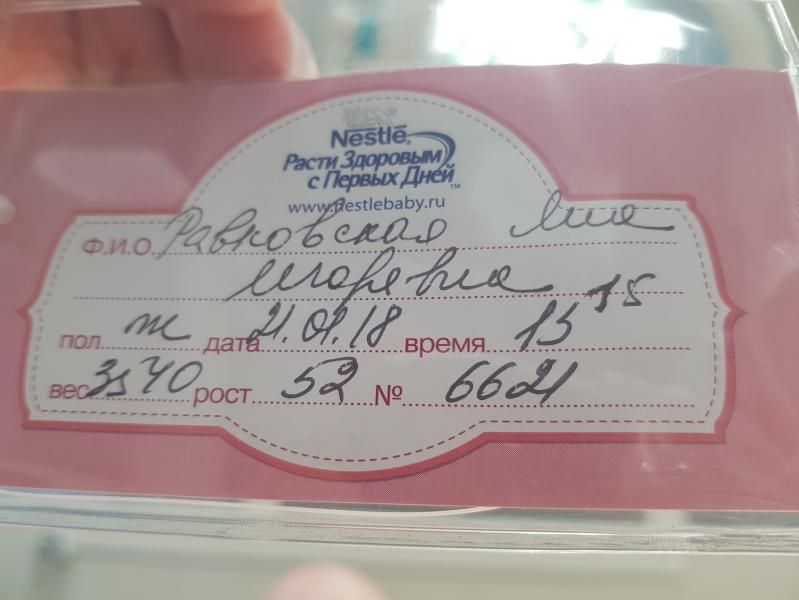 Nestlé
Расти Здоровым
с Первых Дней™
www.nestlebaby.ru
Ф.И.О. Равковская Мия
Игоревна
пол ж дата 21.01.18 время 15 15
вес 3540 рост 52 № 6621